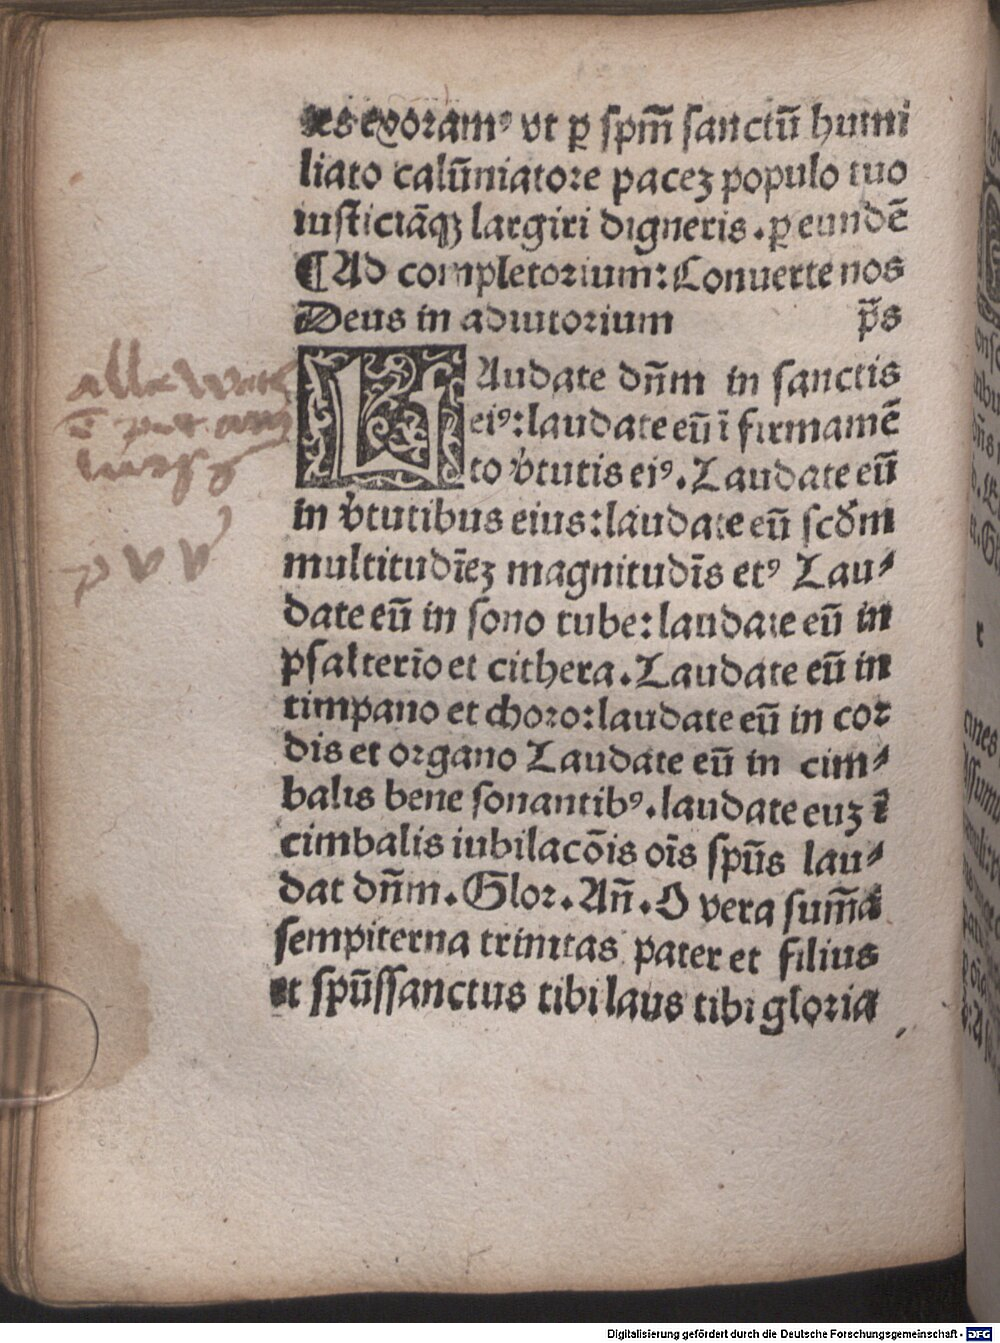 exoramꝰ vt ꝑ spm̃ sanctũ humi
liato calũniatore pacez populo tuo
iusticiãqꝫ largiri digneris. ꝑ eundẽ
¶ Ad completorium: Conuerte nos
Deus in adiutorium p̃s
LAudate dñm in sanctis
eiꝰ: laudate eũ ĩ firmamẽ
to v̾tutis eiꝰ. Laudate eũ
in v̾tutibus eius: laudate eũ scďm
multitudĩez magnitudĩs eiꝰ Lau⸗
date eũ in sono tube: laudate eũ in
psalterĩo et cithera. Laudate eũ in
timpano et choro: laudate eũ in cor
dis et organo Laudate eũ in cim⸗
balis bene sonantibꝰ. laudate euz ĩ
cimbalis iubilacõis oĩs spũs lau⸗
dat dñm. Glor. Añ. O vera sum̃a
sempiterna trinitas pater et filius
et spũssanctus tibi laus tibi gloria
p v v
Digitalisierung gefördert durch die Deutsche Forschungsgemeinschaft - DFG